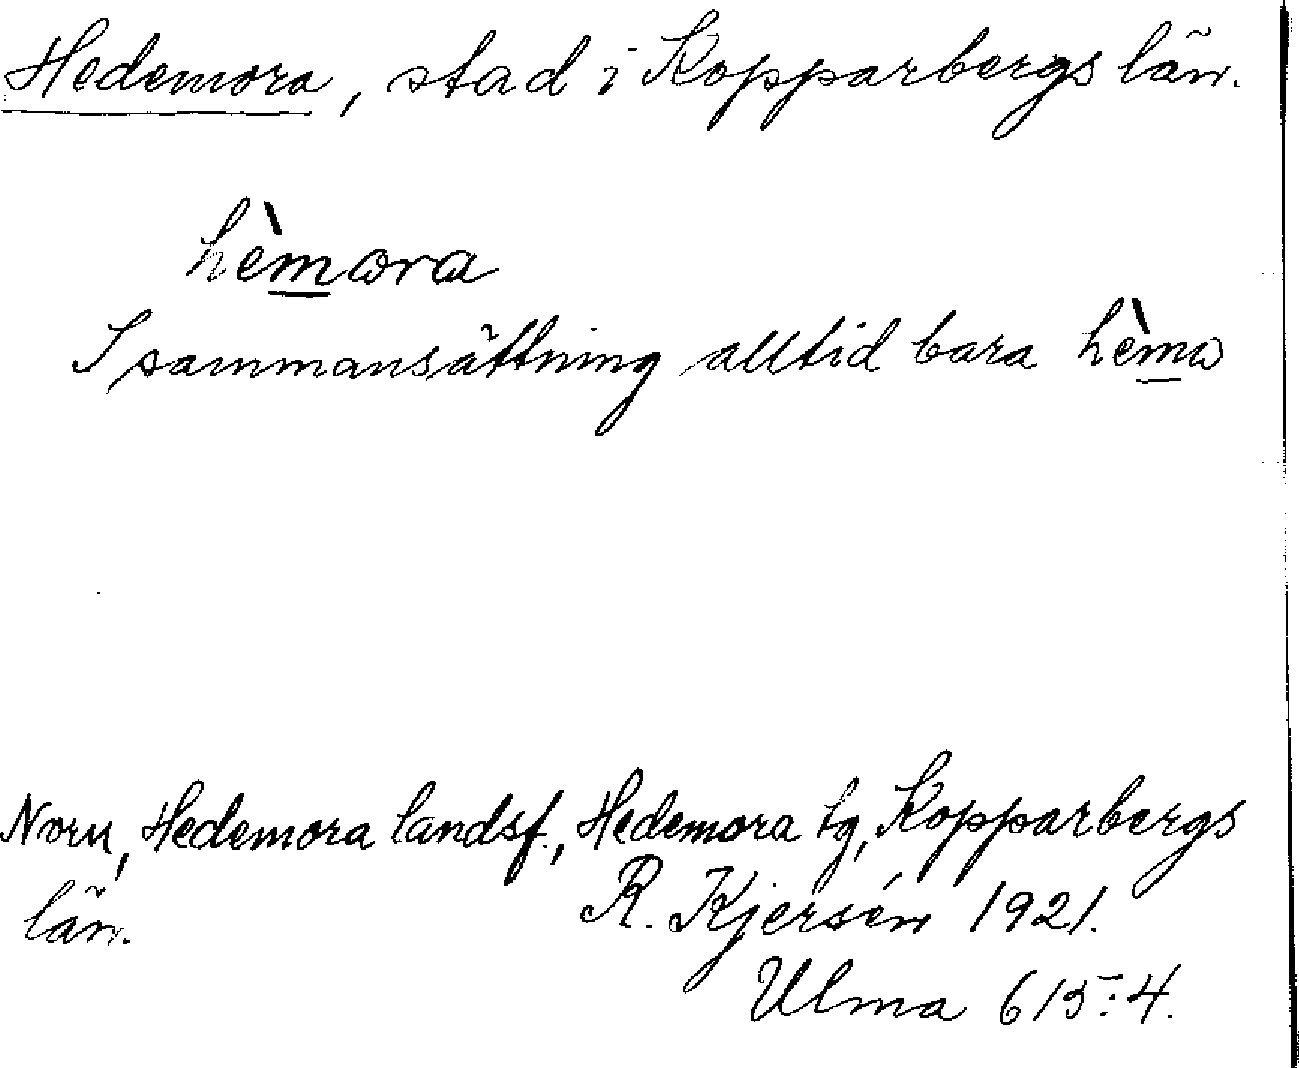 Hedemora, stad i Kopparbergs län.
hèmωra
I sammansättning alltid bara hèmω
Norn, Hedemora landsf., Hedemora tg, Kopparbergs
län. R. Kjersén 1921.
Ulma 615:4.